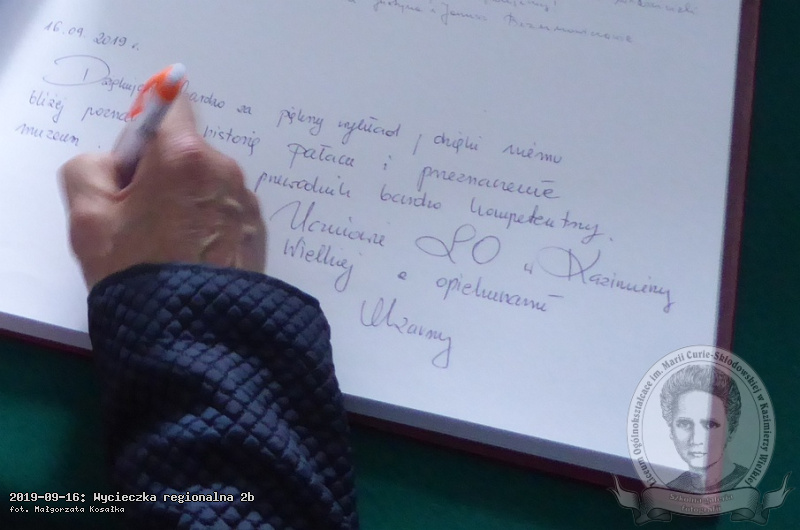 i Janusz
16.09.2019 r.
Dziękuję bardzo za piękny wykład, dzięki niemu
bliżej historię pałacu i przeznaczenie
muzeum. przewodnik bardzo kompetentny.
Uczniowie LO w Kazimierzy
Wielkiej z opiekunami
2019-09-16: Wycieczka regionalna 2b
fot. Małgorzata Kosałka
Liceum Ogólnokształcące im. Marii Curie-Skłodowskiej w Kazimierzy Wielkiej